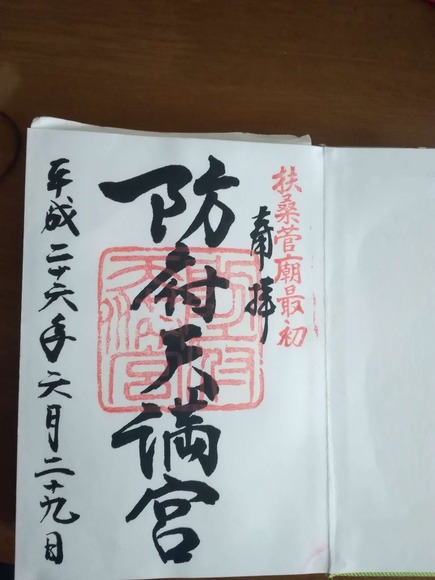 扶桑菅廟最初
奉拝
防府天満宮
平成二十六年六月二十九日